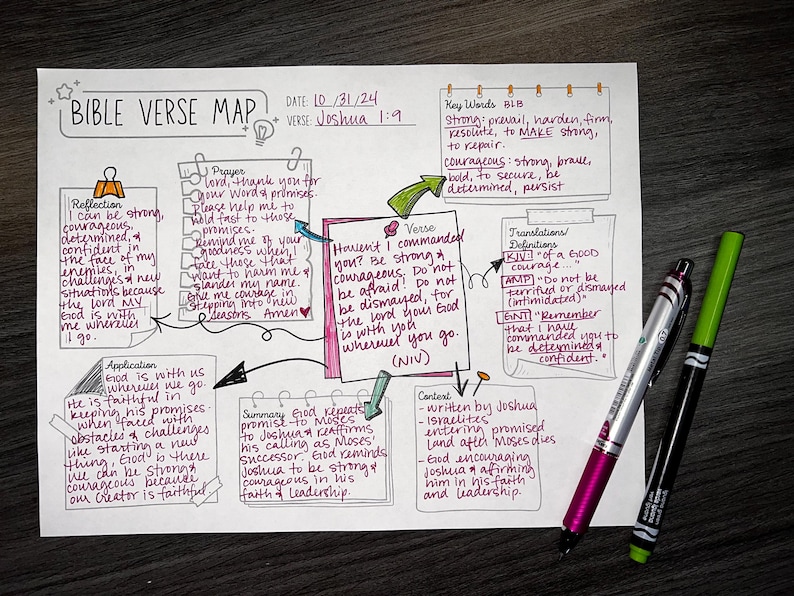 BIBLE VERSE MAP
DATE: 10/31/24
VERSE: Joshua 1:9
Key Words BLB
Strong: prevail, harden, firm,
resolute, to MAKE strong,
to repair.
courageous: strong, brave,
bold, to secure, be
determined, persist
Prayer
Lord, thank you for
your Word & promises.
Please help me to
hold fast to those
promises.
Remind me of your
goodness when I
face those that
want to harm me &
slander my name.
Give me courage in
stepping into new
seasons. Amen
Reflection
I can be strong,
courageous,
determined, &
confident in
the face of my
enemies, in
challenges & new
situations because
the Lord MY
God is with
me wherever
I go.
Verse
Haven't I commanded
you? Be strong &
courageous. Do not
be afraid! Do not
be dismayed, for
the Lord your God
is with you
wherever you go.
(NIV)
Translations/
Definitions
KJV: "of a GOOD
courage..."
AMP "Do not be
terrified or dismayed
(intimidated)"
GNT "Remember
that I have
commanded you to
be determined &
confident."
Application
God is with us
wherever we go.
He is faithful in
keeping his promises.
when faced with
obstacles & challenges
like starting a new
thing, God is there
We can be strong &
courageous because
our Creator is faithful
Summary God repeats
promise to Moses
to Joshua & reaffirms
his calling as Moses'
successor. God reminds
Joshua to be strong &
courageous in his
faith & leadership.
Context
- written by Joshua
- Israelites
entering promised
land after Moses dies
- God encouraging
Joshua & affirming
him in his faith
and leadership.